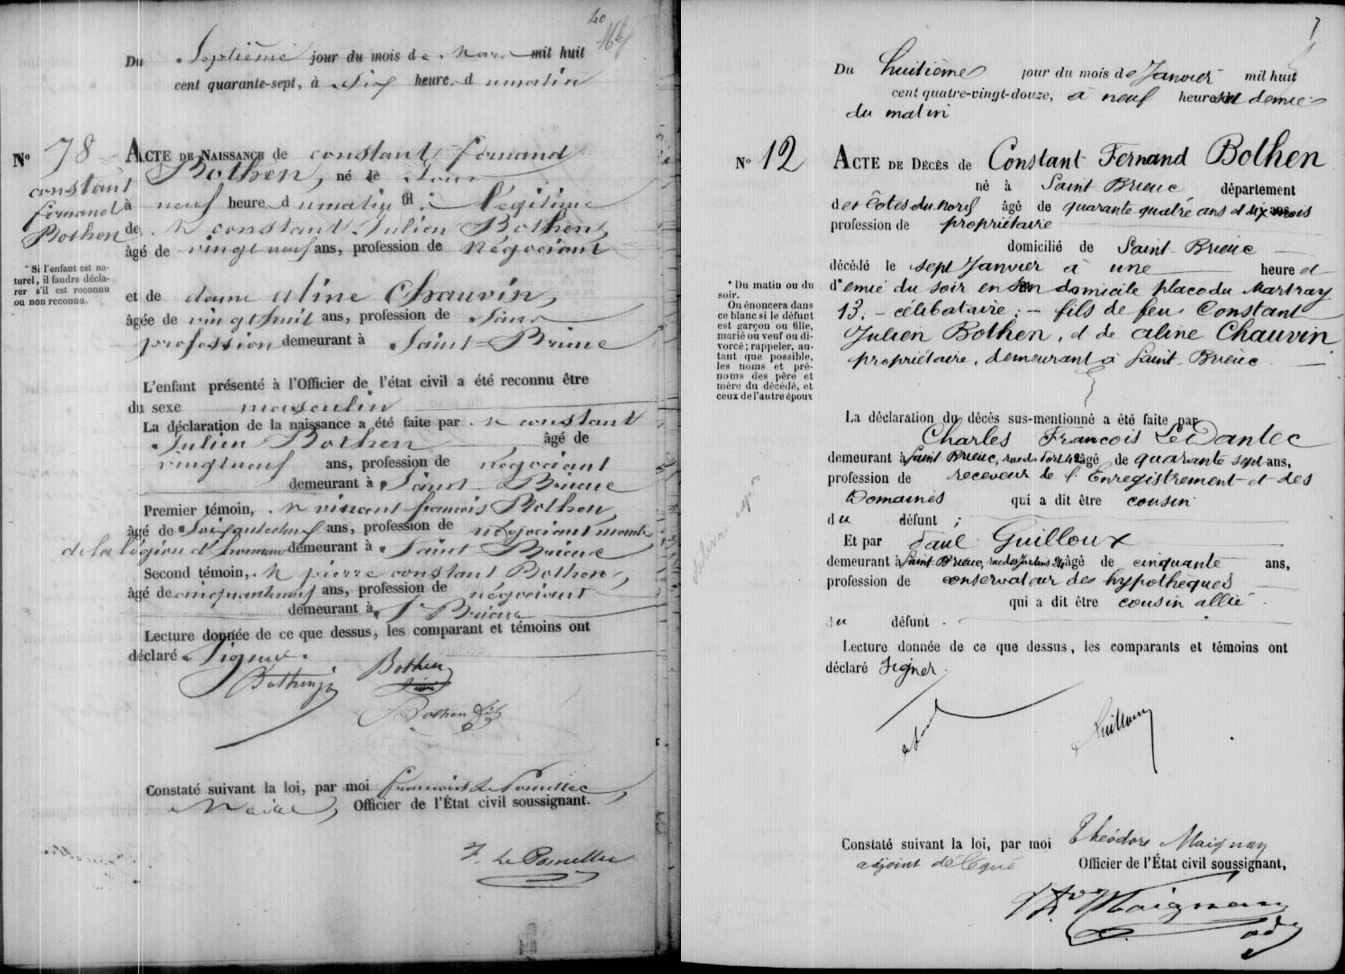 40
Du Septième jour du mois de Mars mil huit
cent quarante-sept, à dix heures du matin
N° 78
constant
fernand
Bothen
* Si l'enfant est na-
turel, il faudra décla-
rer s'il est reconnu
ou non reconnu.
ACTE DE NAISSANCE de constant fernand
Bothen, né ce Jour
à neuf heures du matin fils légitime
de M constant Julien Bothen,
âgé de vingt neuf ans, profession de Négociant
et de dame aline Chauvin,
âgée de vingt huit ans, profession de sans
profession demeurant à Saint-Brieuc
L'enfant présenté à l'Officier de l'état civil a été reconnu être
du sexe masculin
La déclaration de la naissance a été faite par M constant
Julien Bothen âgé de
vingt neuf ans, profession de négociant
demeurant à Saint Brieuc
Premier témoin, M vincent françois Bothen,
âgé de ans, profession de négociant membre
de la légion d'honneur demeurant à Saint Brieuc
Second témoin, M pierre constant Bothen,
âgé de cinquante neuf ans, profession de négociant
demeurant à St Brieuc
Lecture donnée de ce que dessus, les comparant et témoins ont
déclaré Signer.
Bothen
Bothen
Bothen fils
Constaté suivant la loi, par moi françois Le Pomellec,
Maire, Officier de l'État civil soussignant.
F. Le Pomellec
7
Du huitième jour du mois de Janvier mil huit
cent quatre-vingt-douze, à neuf heures et demie
du matin
N° 12
ACTE DE DÉCÈS de Constant Fernand Bothen
né à Saint Brieuc département
des Côtes du Nord âgé de quarante quatre ans et dix mois
profession de propriétaire
domicilié de Saint-Brieuc
décédé le sept Janvier à une heure et
demie du soir en son domicile place du Martray
13. - célibataire; - fils de feu Constant
Julien Bothen, et de aline Chauvin
propriétaire, demeurant à Saint-Brieuc
* Du matin ou du
soir.
On énoncera dans
ce blanc si le défunt
est garçon ou fille,
marié ou veuf ou di-
vorcé; rappeler, au-
tant que possible,
les noms et pré-
noms des père et
mère du décédé, et
ceux de l'autre époux
La déclaration du décès sus-mentionné a été faite par
Charles François Le Dantec
demeurant à Saint Brieuc, rue du Port 42 âgé de quarante sept ans,
profession de receveur de l'Enregistrement et des
Domaines qui a dit être cousin
du défunt;
Et par Paul Guilloux
demeurant à Saint Brieuc, rue des 24 âgé de cinquante ans,
profession de conservateur des hypothèques
qui a dit être cousin allié
du défunt.
Lecture donnée de ce que dessus, les comparants et témoins ont
déclaré signer
Guilloux
Constaté suivant la loi, par moi Théodore Maignan
adjoint délégué Officier de l'État civil soussignant,
Th Maignan
adj